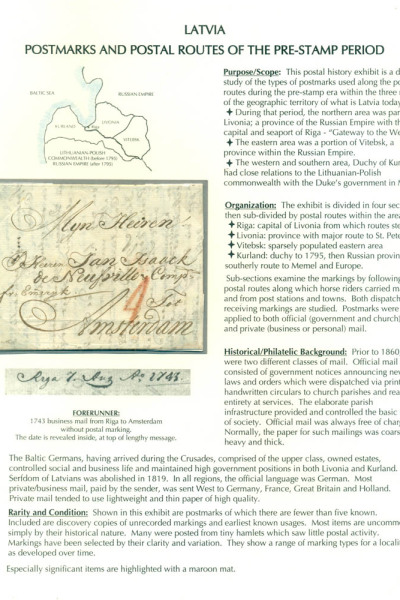 LATVIA
POSTMARKS AND POSTAL ROUTES OF THE PRE-STAMP PERIOD
BALTIC SEA
RUSSIAN EMPIRE
LIVONIA
KURLAND
VITEBSK
LITHUANIAN-POLISH
COMMONWEALTH (before 1795)
RUSSIAN EMPIRE (after 1795)
Mijn Heeren
Jan Isaack
de Neufville & Comp
4
Amsterdam
Riga 7. Aug Ao 1743.
FORERUNNER:
1743 business mail from Riga to Amsterdam
without postal marking.
The date is revealed inside, at top of lengthy message.
Purpose/Scope: This postal history exhibit is a
study of the types of postmarks used along the
routes during the pre-stamp era within the three
of the geographic territory of what is Latvia today
During that period, the northern area was part
Livonia; a province of the Russian Empire with
capital and seaport of Riga - "Gateway to the
The eastern area was a portion of Vitebsk, a
province within the Russian Empire.
The western and southern area, Duchy of
had close relations to the Lithuanian-Polish
commonwealth with the Duke's government in
Organization: The exhibit is divided in four
then sub-divided by postal routes within the
Riga: capital of Livonia from which routes
Livonia: province with major route to St.
Vitebsk: sparsely populated eastern area
Kurland: duchy to 1795, then Russian
southerly route to Memel and Europe.
Sub-sections examine the markings by following
postal routes along which horse riders carried
and from post stations and towns. Both
receiving markings are studied. Postmarks were
applied to both official (government and church)
and private (business or personal) mail.
Historical/Philatelic Background: Prior to 1860
were two different classes of mail. Official mail
consisted of government notices announcing
laws and orders which were dispatched via
handwritten circulars to church parishes and
entirety at services. The elaborate parish
infrastructure provided and controlled the basic
of society. Official mail was always free of
Normally, the paper for such mailings was
heavy and thick.
The Baltic Germans, having arrived during the Crusades, comprised of the upper class, owned estates,
controlled social and business life and maintained high government positions in both Livonia and Kurland.
Serfdom of Latvians was abolished in 1819. In all regions, the official language was German. Most
private/business mail, paid by the sender, was sent West to Germany, France, Great Britain and Holland.
Private mail tended to use lightweight and thin paper of high quality.
Rarity and Condition: Shown in this exhibit are postmarks of which there are fewer than five known.
Included are discovery copies of unrecorded markings and earliest known usages. Most items are
simply by their historical nature. Many were posted from tiny hamlets which saw little postal activity.
Markings have been selected by their clarity and variation. They show a range of marking types for a
as developed over time.
Especially significant items are highlighted with a maroon mat.